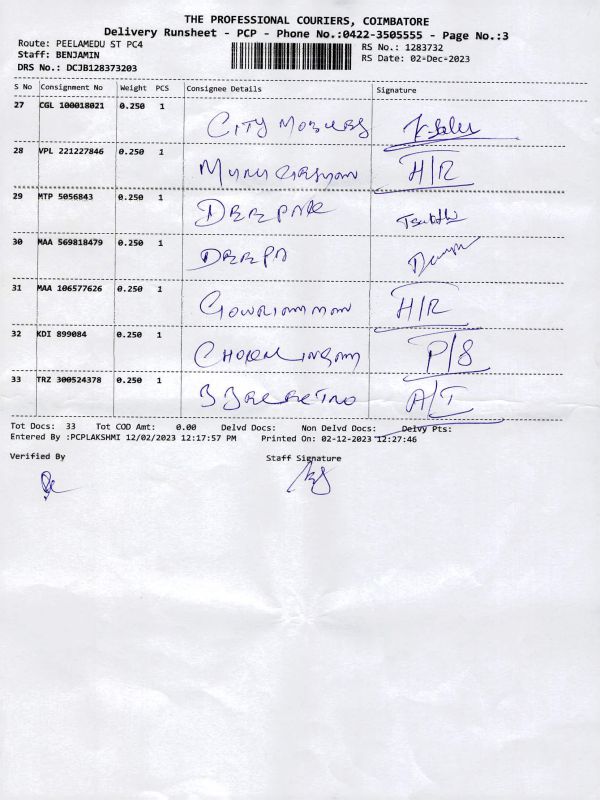 THE PROFESSIONAL COURIERS, COIMBATORE
Delivery Runsheet - PCP - Phone No.:0422-3505555 - Page No.:3
Route: PEELAMEDU ST PC4
RS No.: 1283732
Staff: BENJAMIN
RS Date: 02-Dec-2023
DRS No.: DCJB128373203
S No Consignment No Weight PCS Consignee Details Signature
27 CGL 100018021 0.250 1
CITY
28 VPL 221227846 0.250 1
H/R
29 MTP 5056843 0.250 1
DEEPAK
30 MAA 569818479 0.250 1
DEEPA
31 MAA 106577626 0.250 1
H/R
32 KDI 899084 0.250 1
P/S
33 TRZ 300524378 0.250 1
A/T
Tot Docs: 33 Tot COD Amt: 0.00 Delvd Docs: Non Delvd Docs: Delvy Pts:
Entered By :PCPLAKSHMI 12/02/2023 12:17:57 PM Printed On: 02-12-2023 12:27:46
Verified By Staff Signature